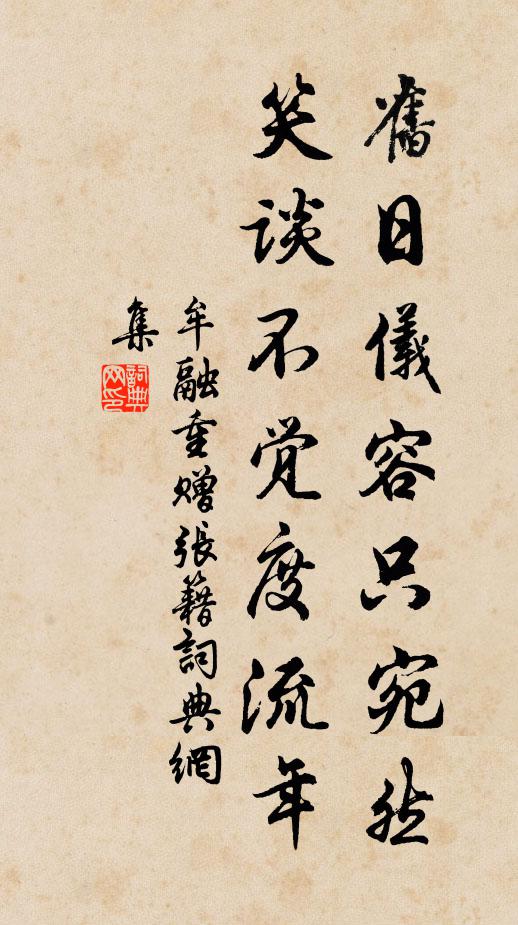 舊日儀容只宛然
笑談不覺度流年
牟融重贈張籍詞典網
集
詞典網印